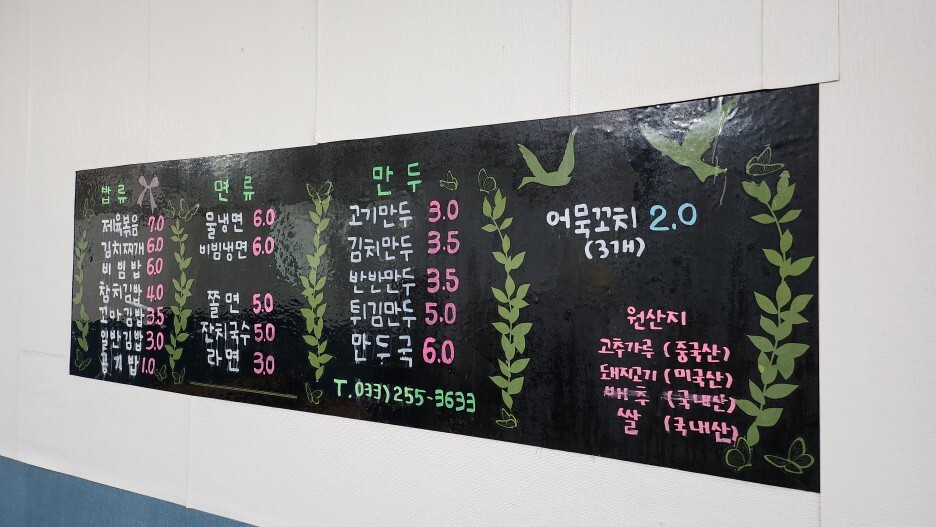 밥류
제육볶음 7.0
김치찌개 6.0
비빔밥 6.0
참치김밥 4.0
꼬마김밥 3.5
일반김밥 3.0
공기밥 1.0
면류
물냉면 6.0
비빔냉면 6.0
쫄면 5.0
잔치국수 5.0
라면 3.0
만두
고기만두 3.0
김치만두 3.5
반반만두 3.5
튀김만두 5.0
만두국 6.0
T.033)255-3633
어묵꼬치 2.0
(3개)
원산지
고추가루 (중국산)
돼지고기 (미국산)
배추 (국내산)
쌀 (국내산)